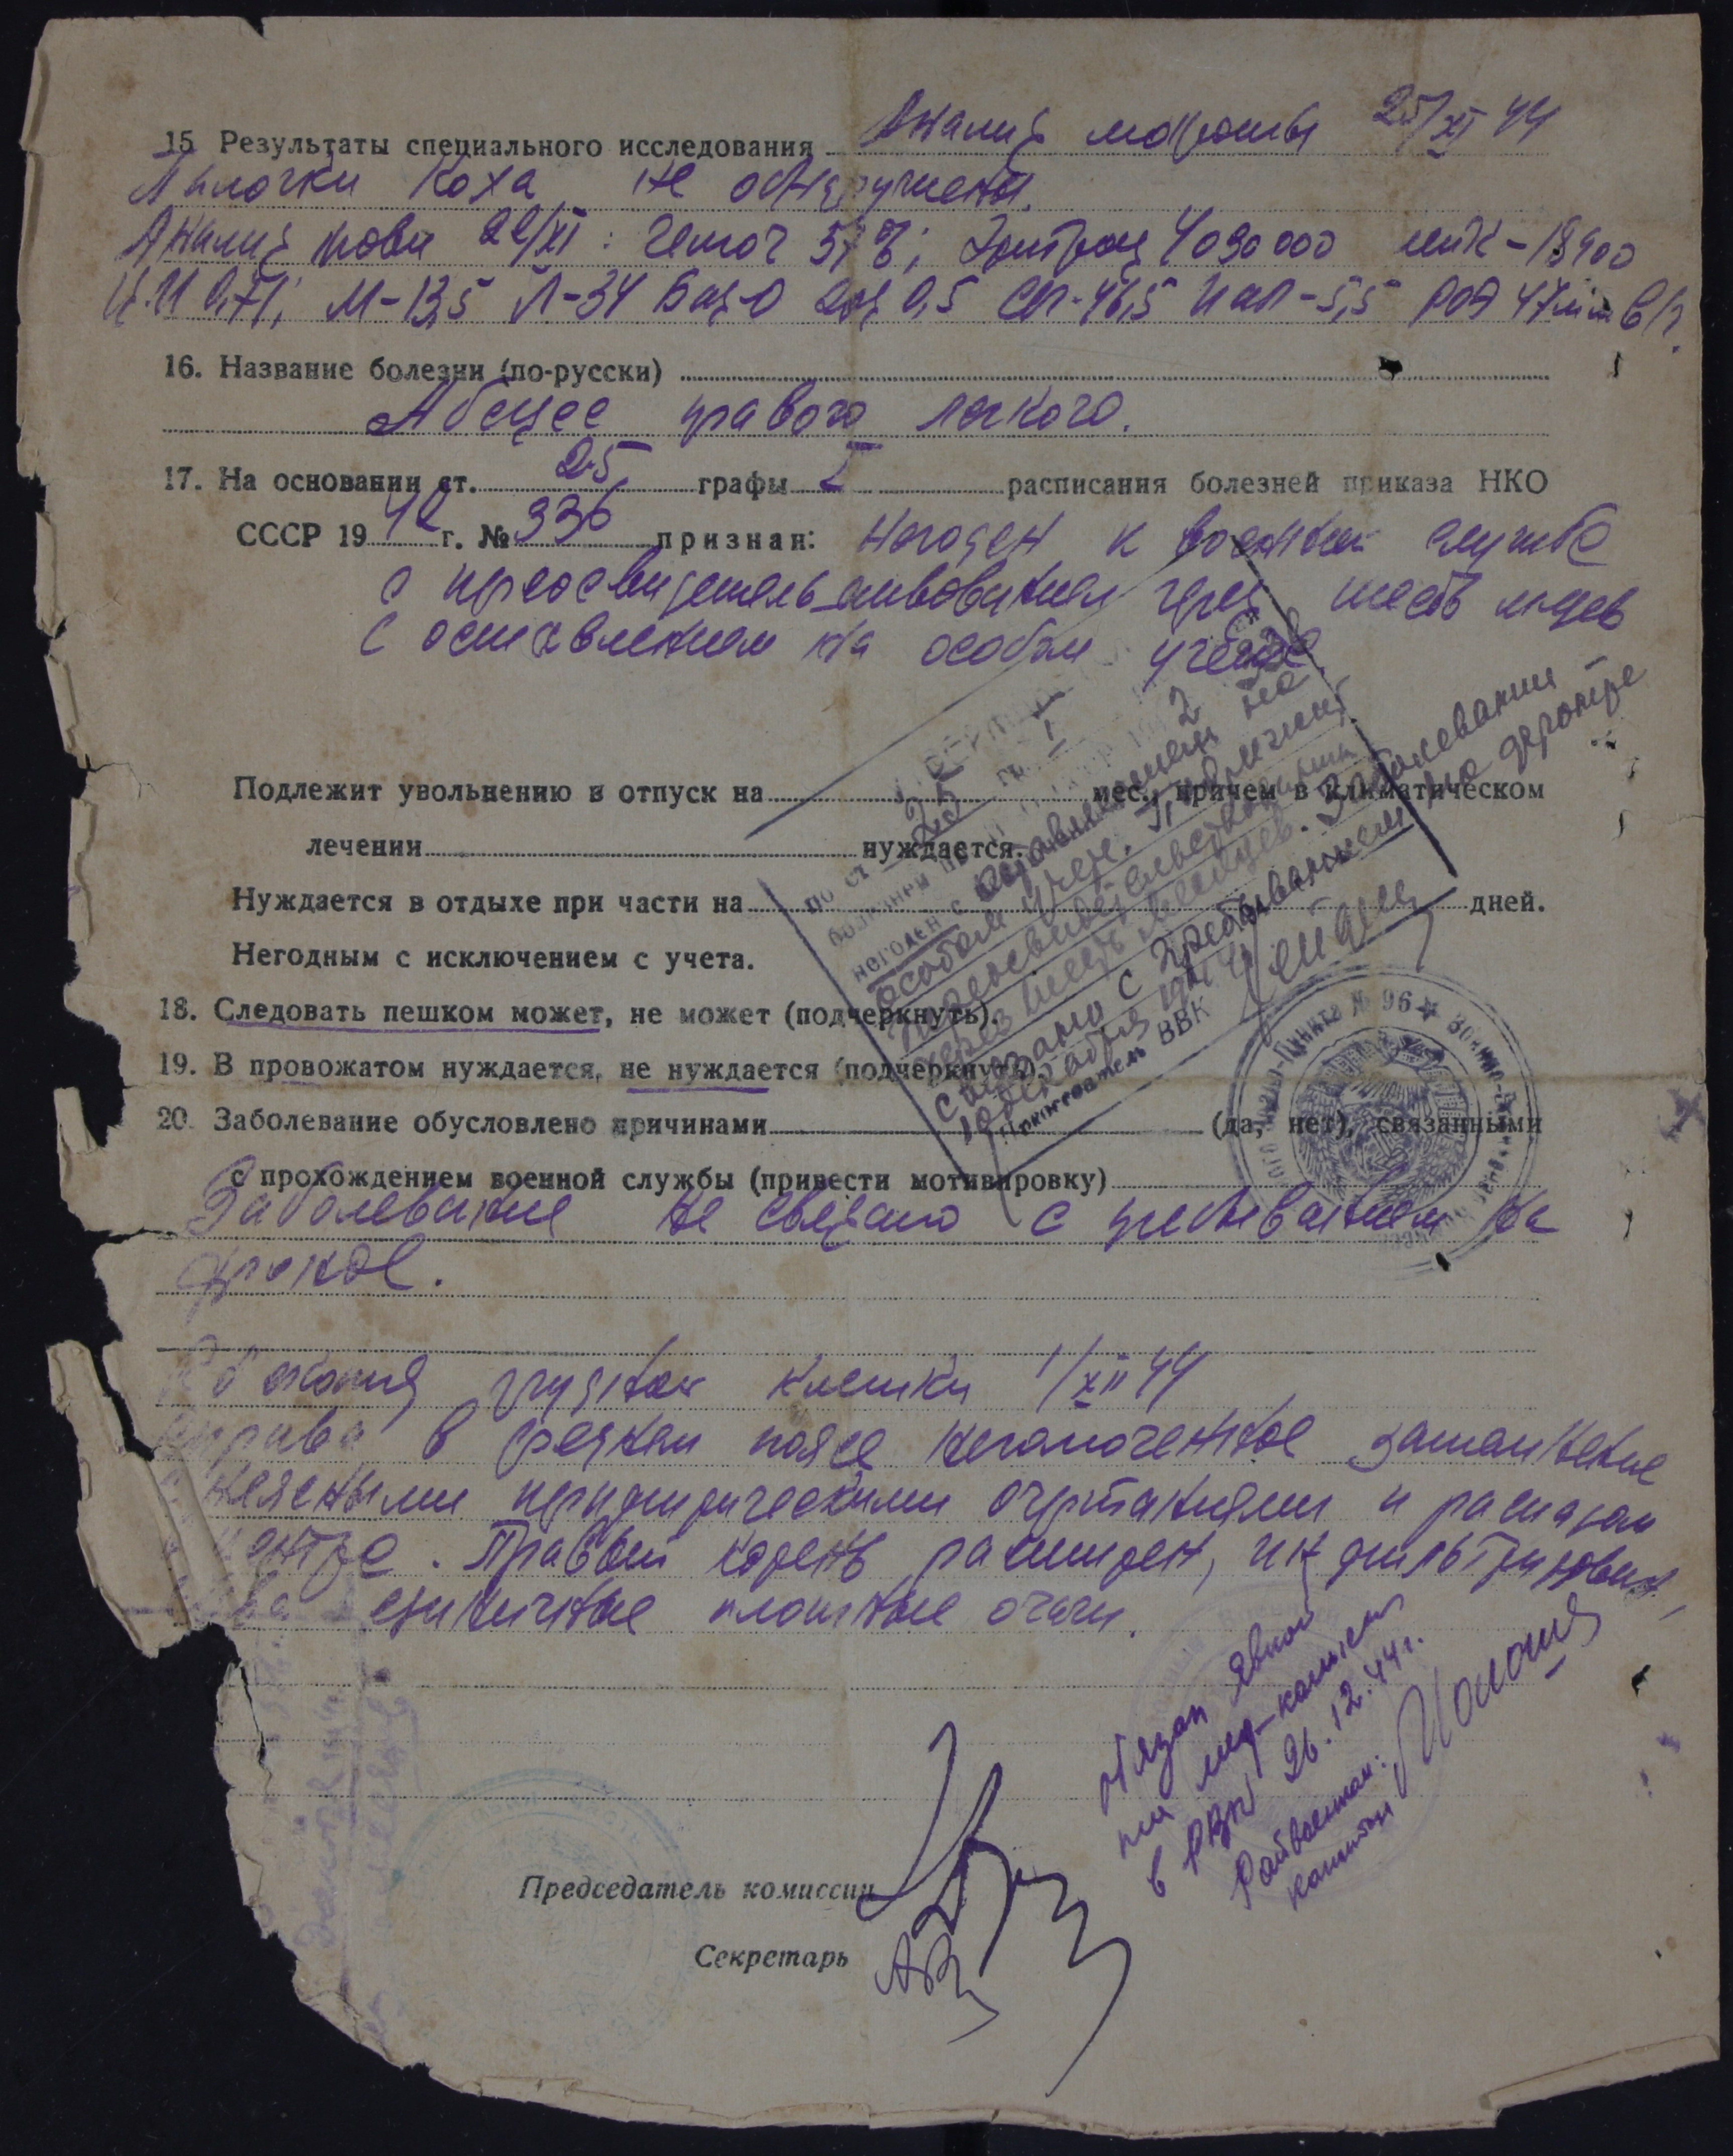 15 Результаты специального исследования Анализ мокроты 25/XI 44
Палочки Коха не обнаружены.
Анализ крови 22/XI : Гемог 57%; Эритроц 4030000 лейк-
Ц.И 0,71; М-13,5 Л-34 Баз-0 Эоз 0,5 Сег-46,5 Пал-5,5 РОЭ 47мм в/ч.
16. Название болезни (по-русски)
Абсцес правого легкого.
17. На основании ст. 25 графы I расписания болезней приказа НКО
СССР 1942 г. № 336 признан: Негоден к военной службе
с переосвидетельствованием через шесть м-цев
с оставлением на особом учете
Подлежит увольнению в отпуск на мес., причем в климатическом
лечении нуждается.
Нуждается в отдыхе при части на дней.
Негодным с исключением с учета.
18. Следовать пешком может, не может (подчеркнуть).
19. В провожатом нуждается, не нуждается (подчеркнуть).
20. Заболевание обусловлено причинами (да, нет), связанными
с прохождением военной службы (привести мотивировку)
Заболевание не связано с пребыванием на
фронте.
по ст. 25 гр. I
болезней
негоден с оставлением на
особом учете. Подлежит
переосвидетельствованию
через шесть месяцев. Заболевание
связано с пребыванием на фронте
декабря 1944
Председатель ВВК
Пункта № 96 ☆ Военно-
грудной клетки 1/XII 44
Справа в среднем поясе негомогенное затемнение
неясными перифирическими очертаниями и распадом
центре. Правый корень расширен, инфильтрирован,
единичные плотные очаги.
Обязан явкой
на мед-комиссию
в РВК 26.12.44г.
Райвоенком:
капитан
Председатель комиссии
Секретарь